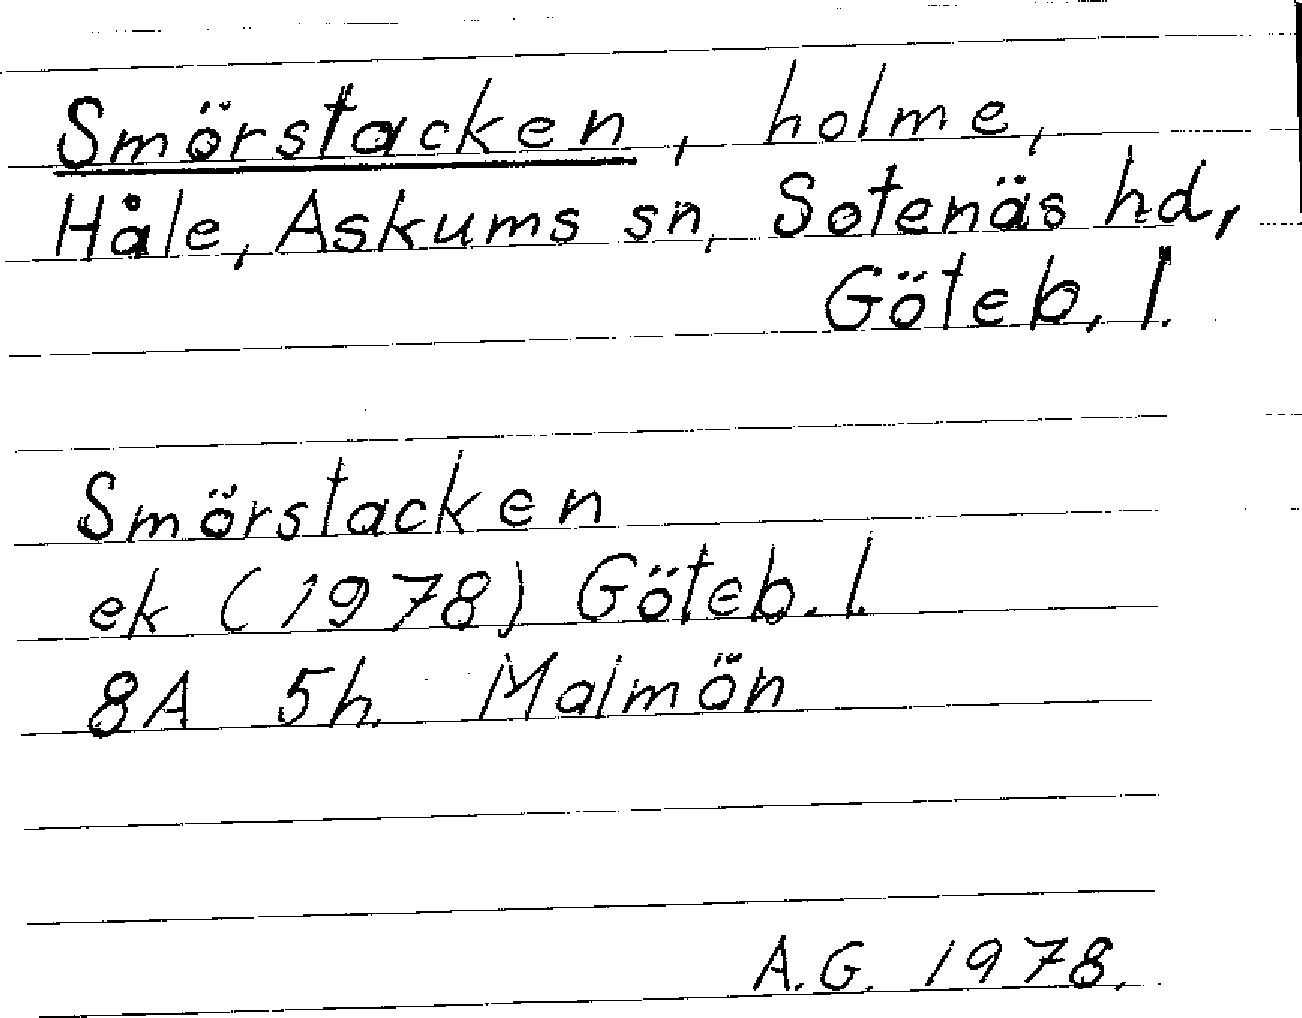 Smörstacken, holme,
Håle, Askums sn, Sotenäs hd,
Göteb. l.
Smörstacken
ek (1978) Göteb. l.
8A 5h. Malmön
A.G. 1978.